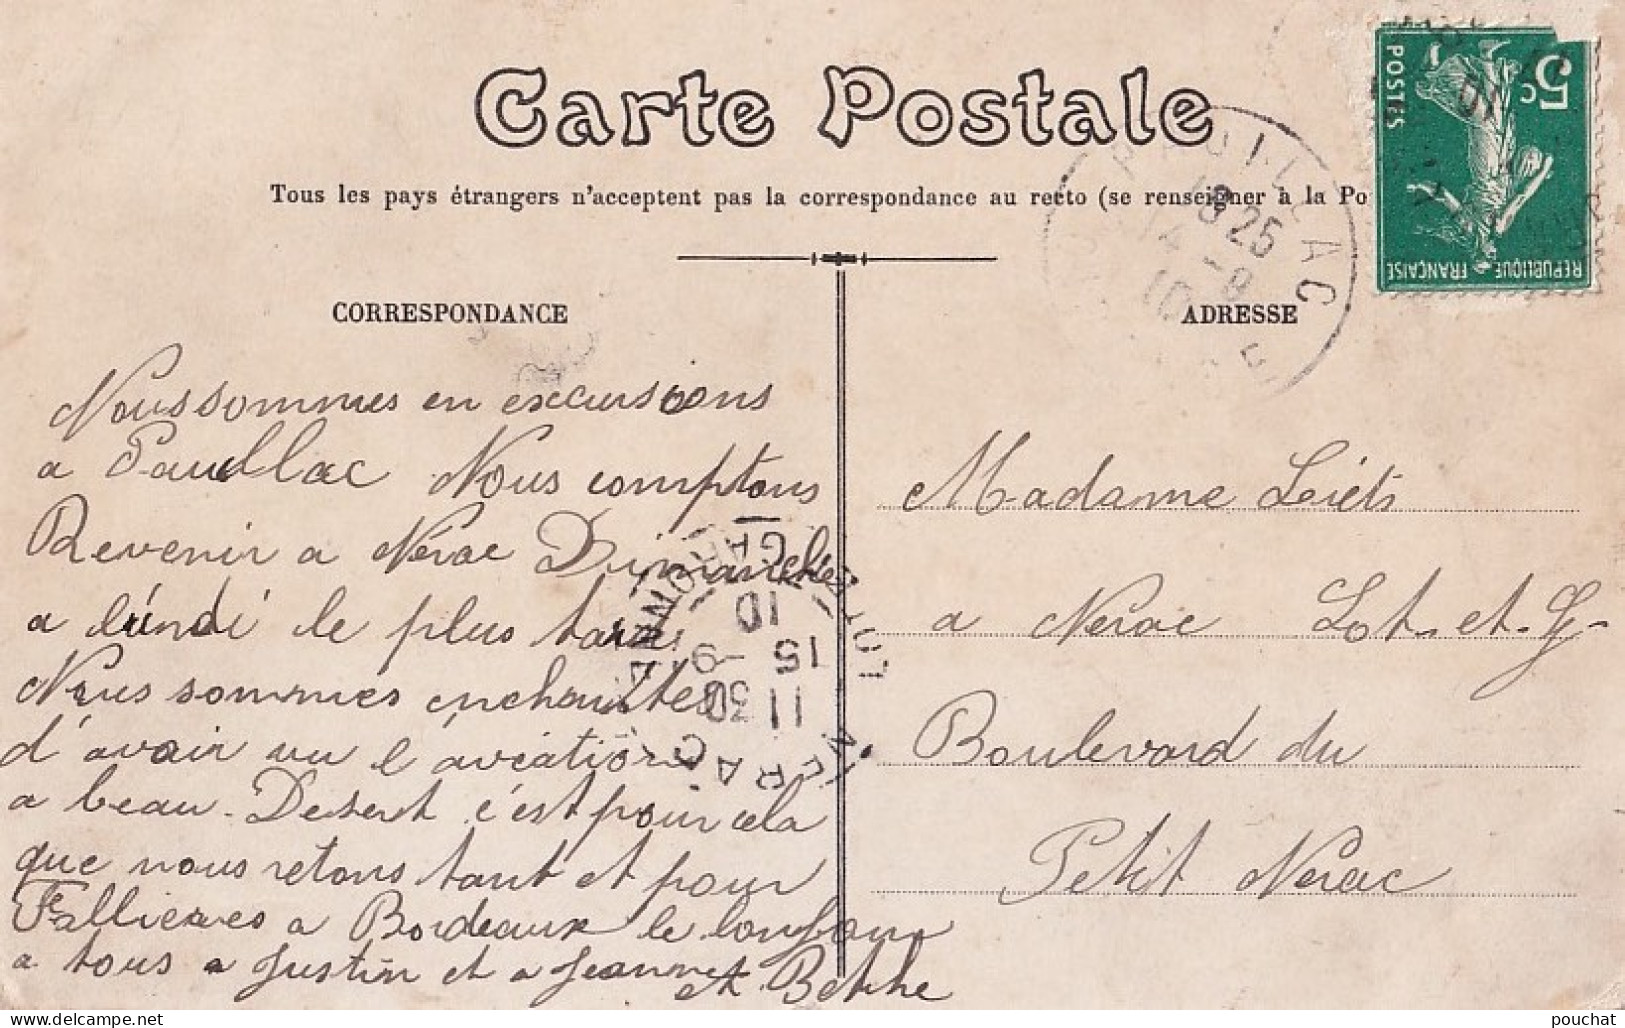 Carte Postale
Tous les pays étrangers n'acceptent pas la correspondance au recto (se renseigner à la Po
POSTES
5c
REPUBLIQUE FRANÇAISE
PAUILLAC
18 25
14 -9
10
CORRESPONDANCE
Nous sommes en excursions
a Pauillac Nous comptons
Revenir a Nérac Dimanche
a lundi le plus tard
Nous sommes enchantés
d'avoir vu l'aviation
a beau-Desert c'est pour cela
que nous retons tant et pour
Fallieres a Bordeaux le bonjour
a tous a Justin et a Jeanne
et Bethe
NERAC
LOT ET GARONNE
11 30
15 -9
10
ADRESSE
Madame
a Nerac Lot-et-G-
Boulevard du
Petit Nerac
pouchat